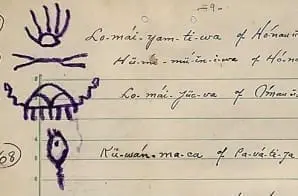 -9-
Lo-mái-yam-ti-wa of Hónau
Hü- mü-ĭn-i-wa of Hóna
Lo-mái-jüc-va of
68
Kü-wán-ma-ca of Pa-vá-ti-ya